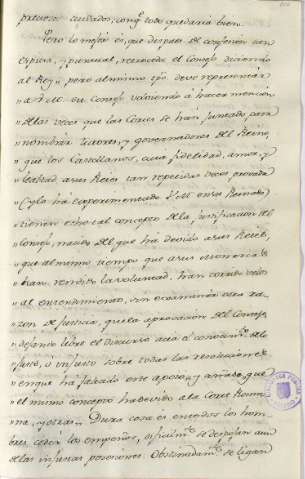 cuidados, conq. todo quedaria bien.
Pero lo mejor es, que despues de confesion tan
expresa, y puntual, reconoce el Consejo
al Rey pero al mismo tpo deve representar
" a V. M. su Consejo volviendo à hacer mencion
" de las veces que las Cortes se han juntado, para
" nombrar tutores, y governadores del Reino,
" que los Castellanos, cuia fidelidad, amor, y
" lealtad a sus Reies tan repetidas veces provada
" (y la ha experimentado V. M. en su Reinado)
" tienen echo tal concepto de la justificacion del
" Consejo, nacido del que há devido a sus Reies,
" que al mismo tiempo que a sus
" rendido la voluntad, han
" al entendimiento, sin examinar otra ra-
" zon de Justicia, que la aprovacion del Consejo,
" dejando libre el discurso acia el conocim.to de lo
" justo, ò injusto sobre todas las resoluciones
" en que ha faltado este apoyo, y añade, que
" el mismo concepto há devido a la Corte Roma-
" na, y otras. Dura cosa es en todos los hom-
bres ceder los empeños, dificilm.te se despojan aun
de las injustas posesiones. Obstinadam.te se ligan